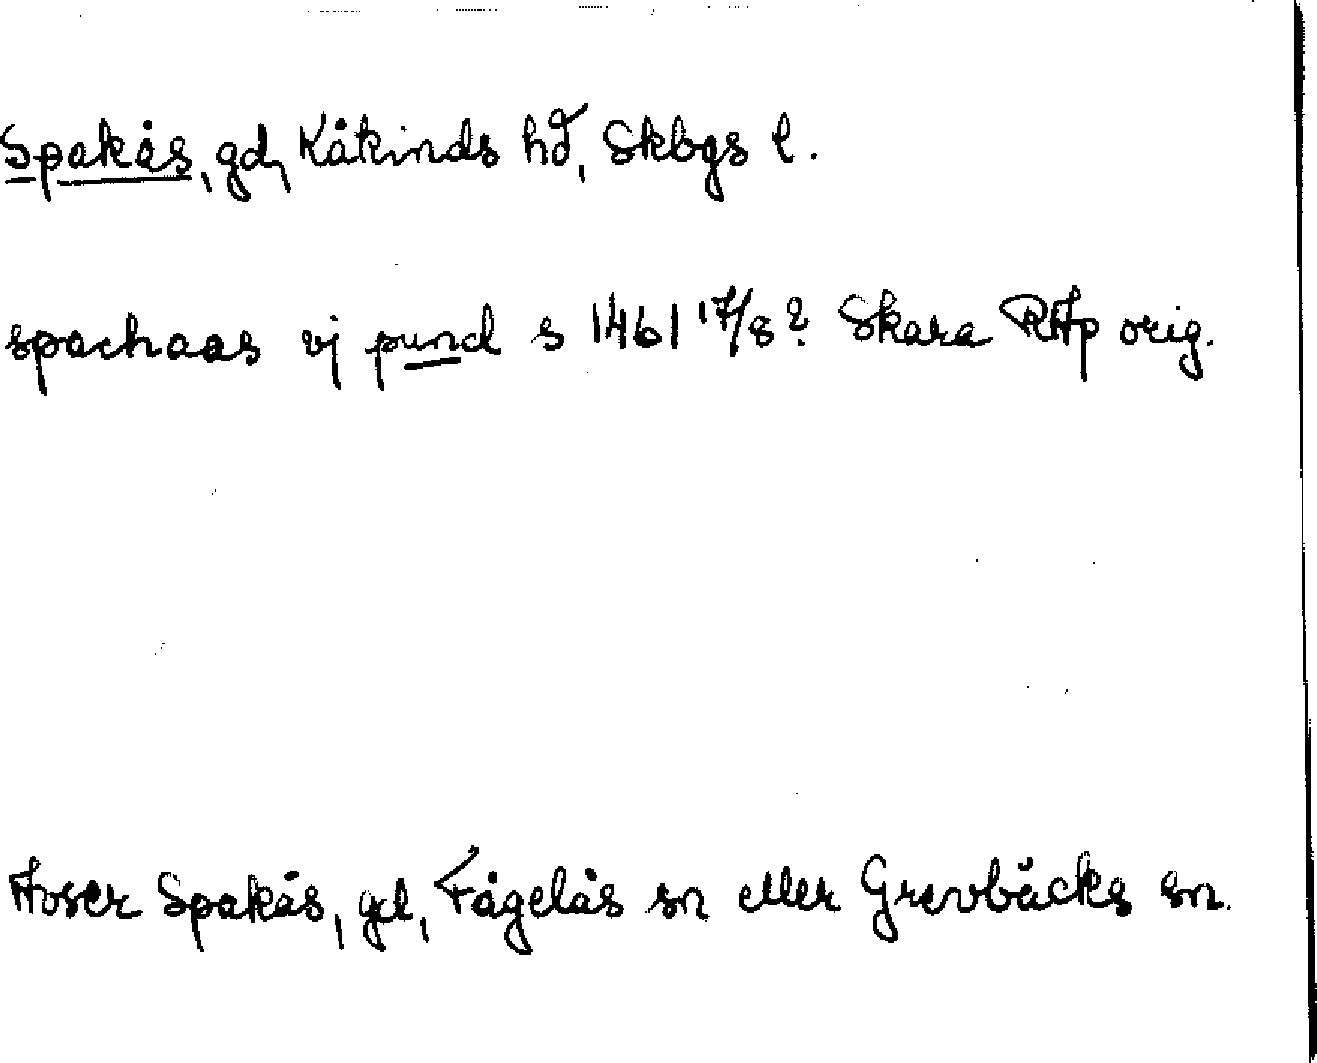 Spakås, gd, Kåkinds hd, Skbgs l.
spachaas vj pund s 1461 17/8? Skara RAp orig.
Avser Spakås, gd, Fågelås sn eller Grevbäcks sn.